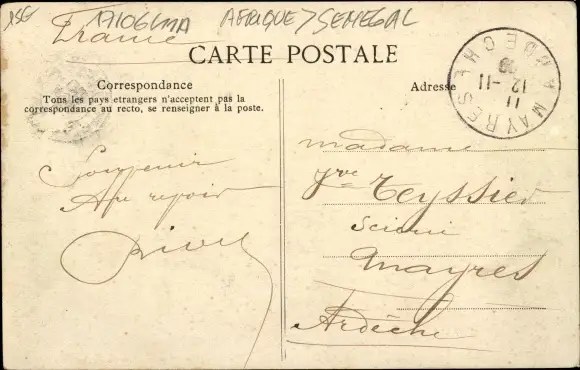 156 171061MA AFRIQUE > SENEGAL
France
CARTE POSTALE
Correspondance
Tous les pays etrangers n'acceptent pas la
correspondance au recto, se renseigner à la poste.
Adresse
MAYRES ARDECHE
11
12 -11
09
Souvenir
Au revoir
madame
Vve Teyssier
Mayres
Ardèche